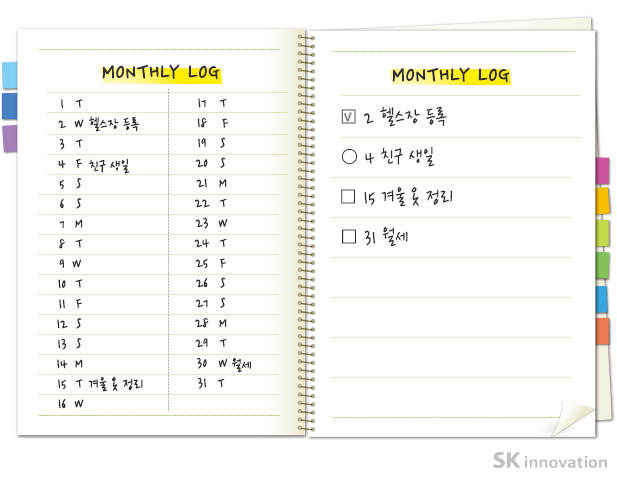 MONTHLY LOG
1 T
2 W 헬스장 등록
3 T
4 F 친구 생일
5 S
6 S
7 M
8 T
9 W
10 T
11 F
12 S
13 S
14 M
15 T 겨울 옷 정리
16 W
17 T
18 F
19 S
20 S
21 M
22 T
23 W
24 T
25 F
26 S
27 S
28 M
29 T
30 W 월세
31 T
MONTHLY LOG
V 2 헬스장 등록
4 친구 생일
15 겨울 옷 정리
31 월세
SK innovation